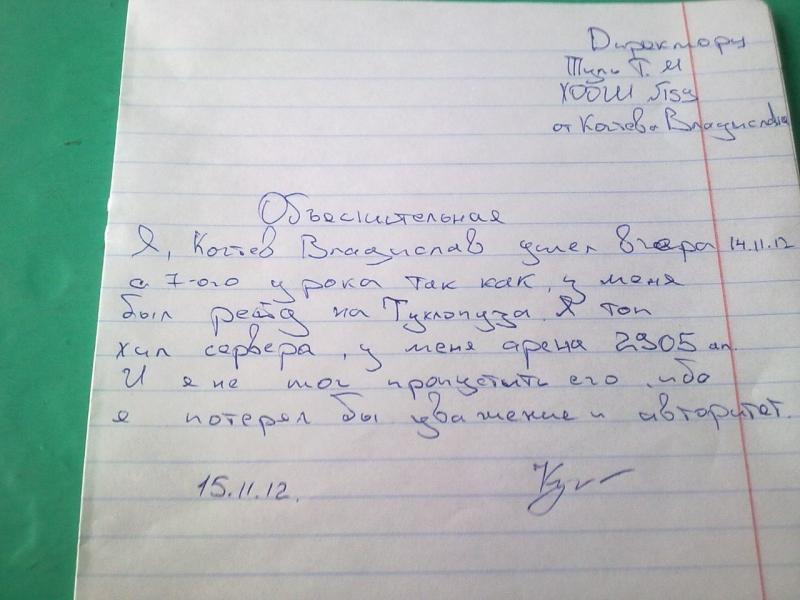 Директору
Тузь Т. М
ХООШ №159
от Когтева Владислава
Объеснительная
Я, Когтев Владислав ушел вчера 14.11.12
с 7-ого урока так как, у меня
был рейд на Тухлопуза. Я топ
хил сервера, у меня арена 2905 ап.
И я не мог пропустить его, ибо
я потерял бы уважение и авторитет.
15.11.12.